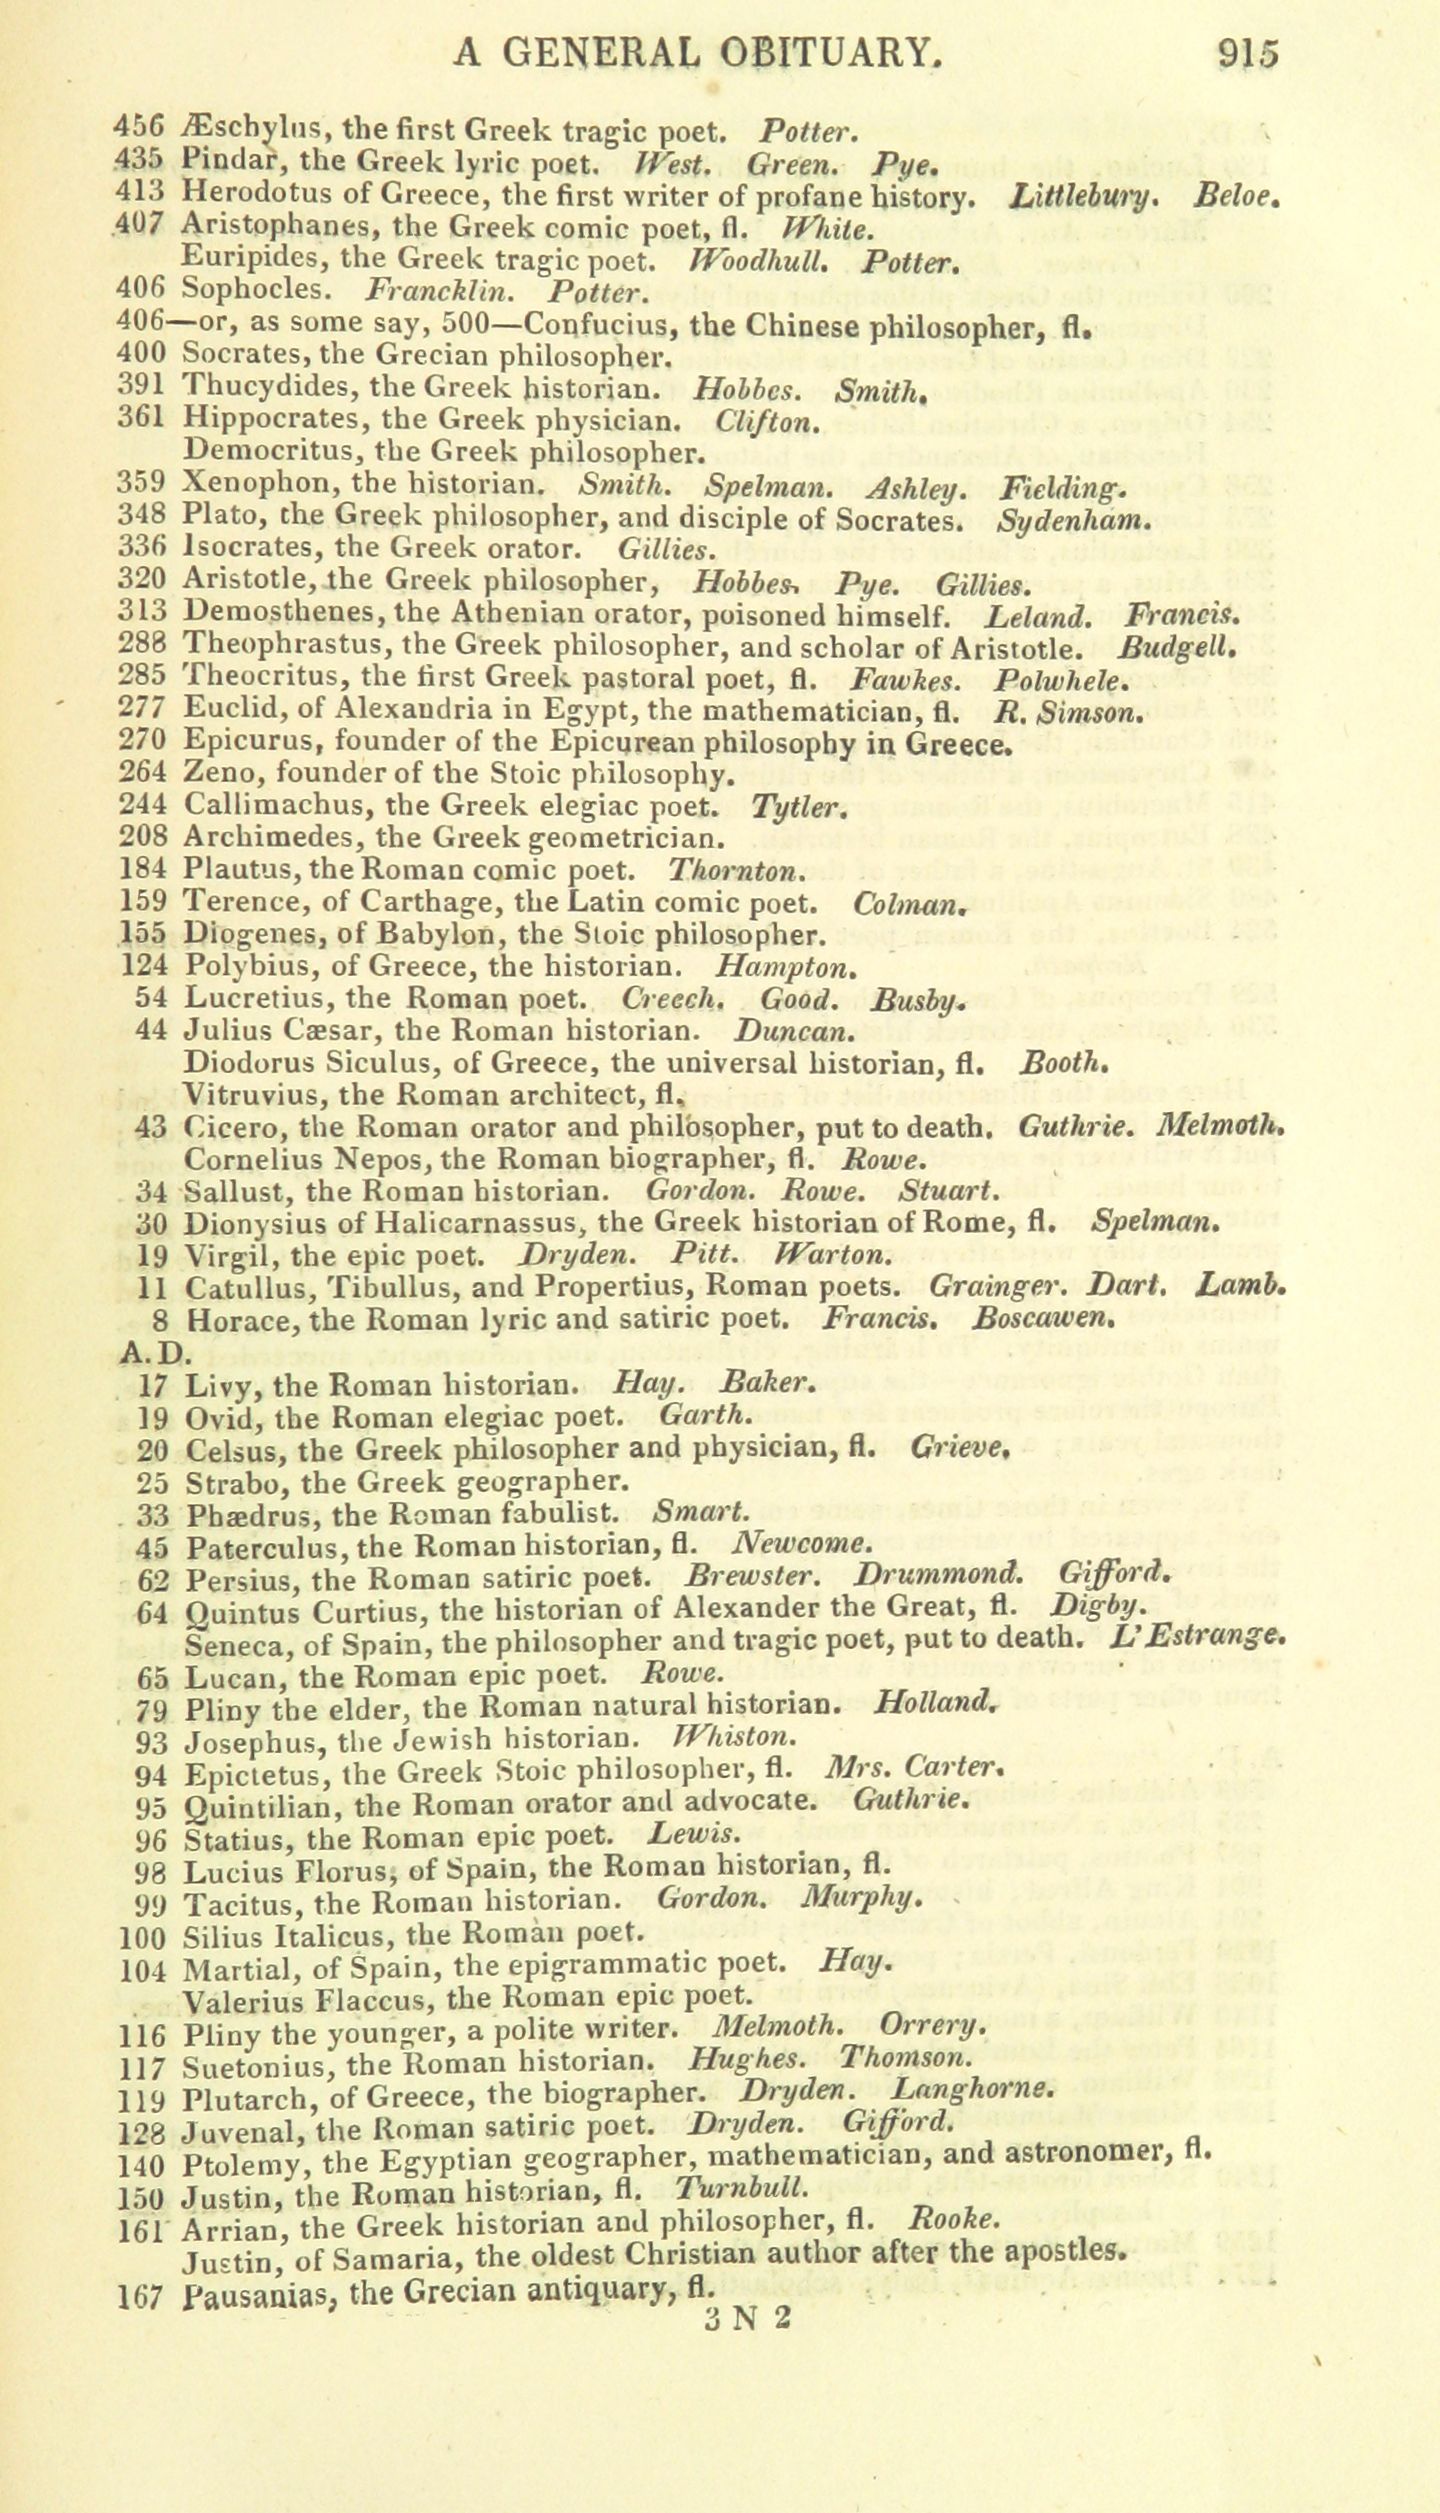 A GENERAL OBITUARY. 915
456 Æschylus, the first Greek tragic poet. Potter.
435 Pindar, the Greek lyric poet. West. Green. Pye.
413 Herodotus of Greece, the first writer of profane history. Littlebury. Beloe.
407 Aristophanes, the Greek comic poet, fl. White.
Euripides, the Greek tragic poet. Woodhull. Potter.
406 Sophocles. Francklin. Potter.
406—or, as some say, 500—Confucius, the Chinese philosopher, fl.
400 Socrates, the Grecian philosopher.
391 Thucydides, the Greek historian. Hobbes. Smith.
361 Hippocrates, the Greek physician. Clifton.
Democritus, the Greek philosopher.
359 Xenophon, the historian. Smith. Spelman. Ashley. Fielding.
348 Plato, the Greek philosopher, and disciple of Socrates. Sydenham.
336 Isocrates, the Greek orator. Gillies.
320 Aristotle, the Greek philosopher, Hobbes. Pye. Gillies.
313 Demosthenes, the Athenian orator, poisoned himself. Leland. Francis.
288 Theophrastus, the Greek philosopher, and scholar of Aristotle. Budgell.
285 Theocritus, the first Greek pastoral poet, fl. Fawkes. Polwhele.
277 Euclid, of Alexandria in Egypt, the mathematician, fl. R. Simson.
270 Epicurus, founder of the Epicurean philosophy in Greece.
264 Zeno, founder of the Stoic philosophy.
244 Callimachus, the Greek elegiac poet. Tytler.
208 Archimedes, the Greek geometrician.
184 Plautus, the Roman comic poet. Thornton.
159 Terence, of Carthage, the Latin comic poet. Colman.
155 Diogenes, of Babylon, the Stoic philosopher.
124 Polybius, of Greece, the historian. Hampton.
54 Lucretius, the Roman poet. Creech. Good. Busby.
44 Julius Cæsar, the Roman historian. Duncan.
Diodorus Siculus, of Greece, the universal historian, fl. Booth.
Vitruvius, the Roman architect, fl.
43 Cicero, the Roman orator and philosopher, put to death. Guthrie. Melmoth.
Cornelius Nepos, the Roman biographer, fl. Rowe.
34 Sallust, the Roman historian. Gordon. Rowe. Stuart.
30 Dionysius of Halicarnassus, the Greek historian of Rome, fl. Spelman.
19 Virgil, the epic poet. Dryden. Pitt. Warton.
11 Catullus, Tibullus, and Propertius, Roman poets. Grainger. Dart. Lamb.
8 Horace, the Roman lyric and satiric poet. Francis. Boscawen.
A.D.
17 Livy, the Roman historian. Hay. Baker.
19 Ovid, the Roman elegiac poet. Garth.
20 Celsus, the Greek philosopher and physician, fl. Grieve.
25 Strabo, the Greek geographer.
33 Phædrus, the Roman fabulist. Smart.
45 Paterculus, the Roman historian, fl. Newcome.
62 Persius, the Roman satiric poet. Brewster. Drummond. Gifford.
64 Quintus Curtius, the historian of Alexander the Great, fl. Digby.
Seneca, of Spain, the philosopher and tragic poet, put to death. L'Estrange.
65 Lucan, the Roman epic poet. Rowe.
79 Pliny the elder, the Roman natural historian. Holland.
93 Josephus, the Jewish historian. Whiston.
94 Epictetus, the Greek Stoic philosopher, fl. Mrs. Carter.
95 Quintilian, the Roman orator and advocate. Guthrie.
96 Statius, the Roman epic poet. Lewis.
98 Lucius Florus, of Spain, the Roman historian, fl.
99 Tacitus, the Roman historian. Gordon. Murphy.
100 Silius Italicus, the Roman poet.
104 Martial, of Spain, the epigrammatic poet. Hay.
Valerius Flaccus, the Roman epic poet.
116 Pliny the younger, a polite writer. Melmoth. Orrery.
117 Suetonius, the Roman historian. Hughes. Thomson.
119 Plutarch, of Greece, the biographer. Dryden. Langhorne.
128 Juvenal, the Roman satiric poet. Dryden. Gifford.
140 Ptolemy, the Egyptian geographer, mathematician, and astronomer, fl.
150 Justin, the Roman historian, fl. Turnbull.
161 Arrian, the Greek historian and philosopher, fl. Rooke.
Justin, of Samaria, the oldest Christian author after the apostles.
167 Pausanias, the Grecian antiquary, fl.
3 N 2